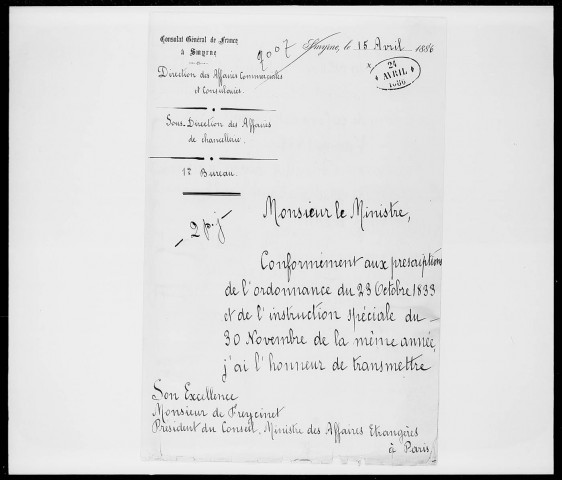 Consulat Général de France
à Smyrne
9007
Smyrne, le 15 Avril 1886
24
AVRIL
1886
Direction des Affaires Commerciales
et Consulaires.
Sous-Direction des Affaires
de chancellerie.
1er Bureau.
2 p.j
Monsieur le Ministre,
Conformément aux prescriptions
de l'ordonnance du 23 Octobre 1833
et de l'instruction spéciale du
30 Novembre de la même année,
j'ai l'honneur de transmettre
Son Excellence
Monsieur de Freycinet
President du Conseil, Ministre des Affaires Etrangères
à Paris.